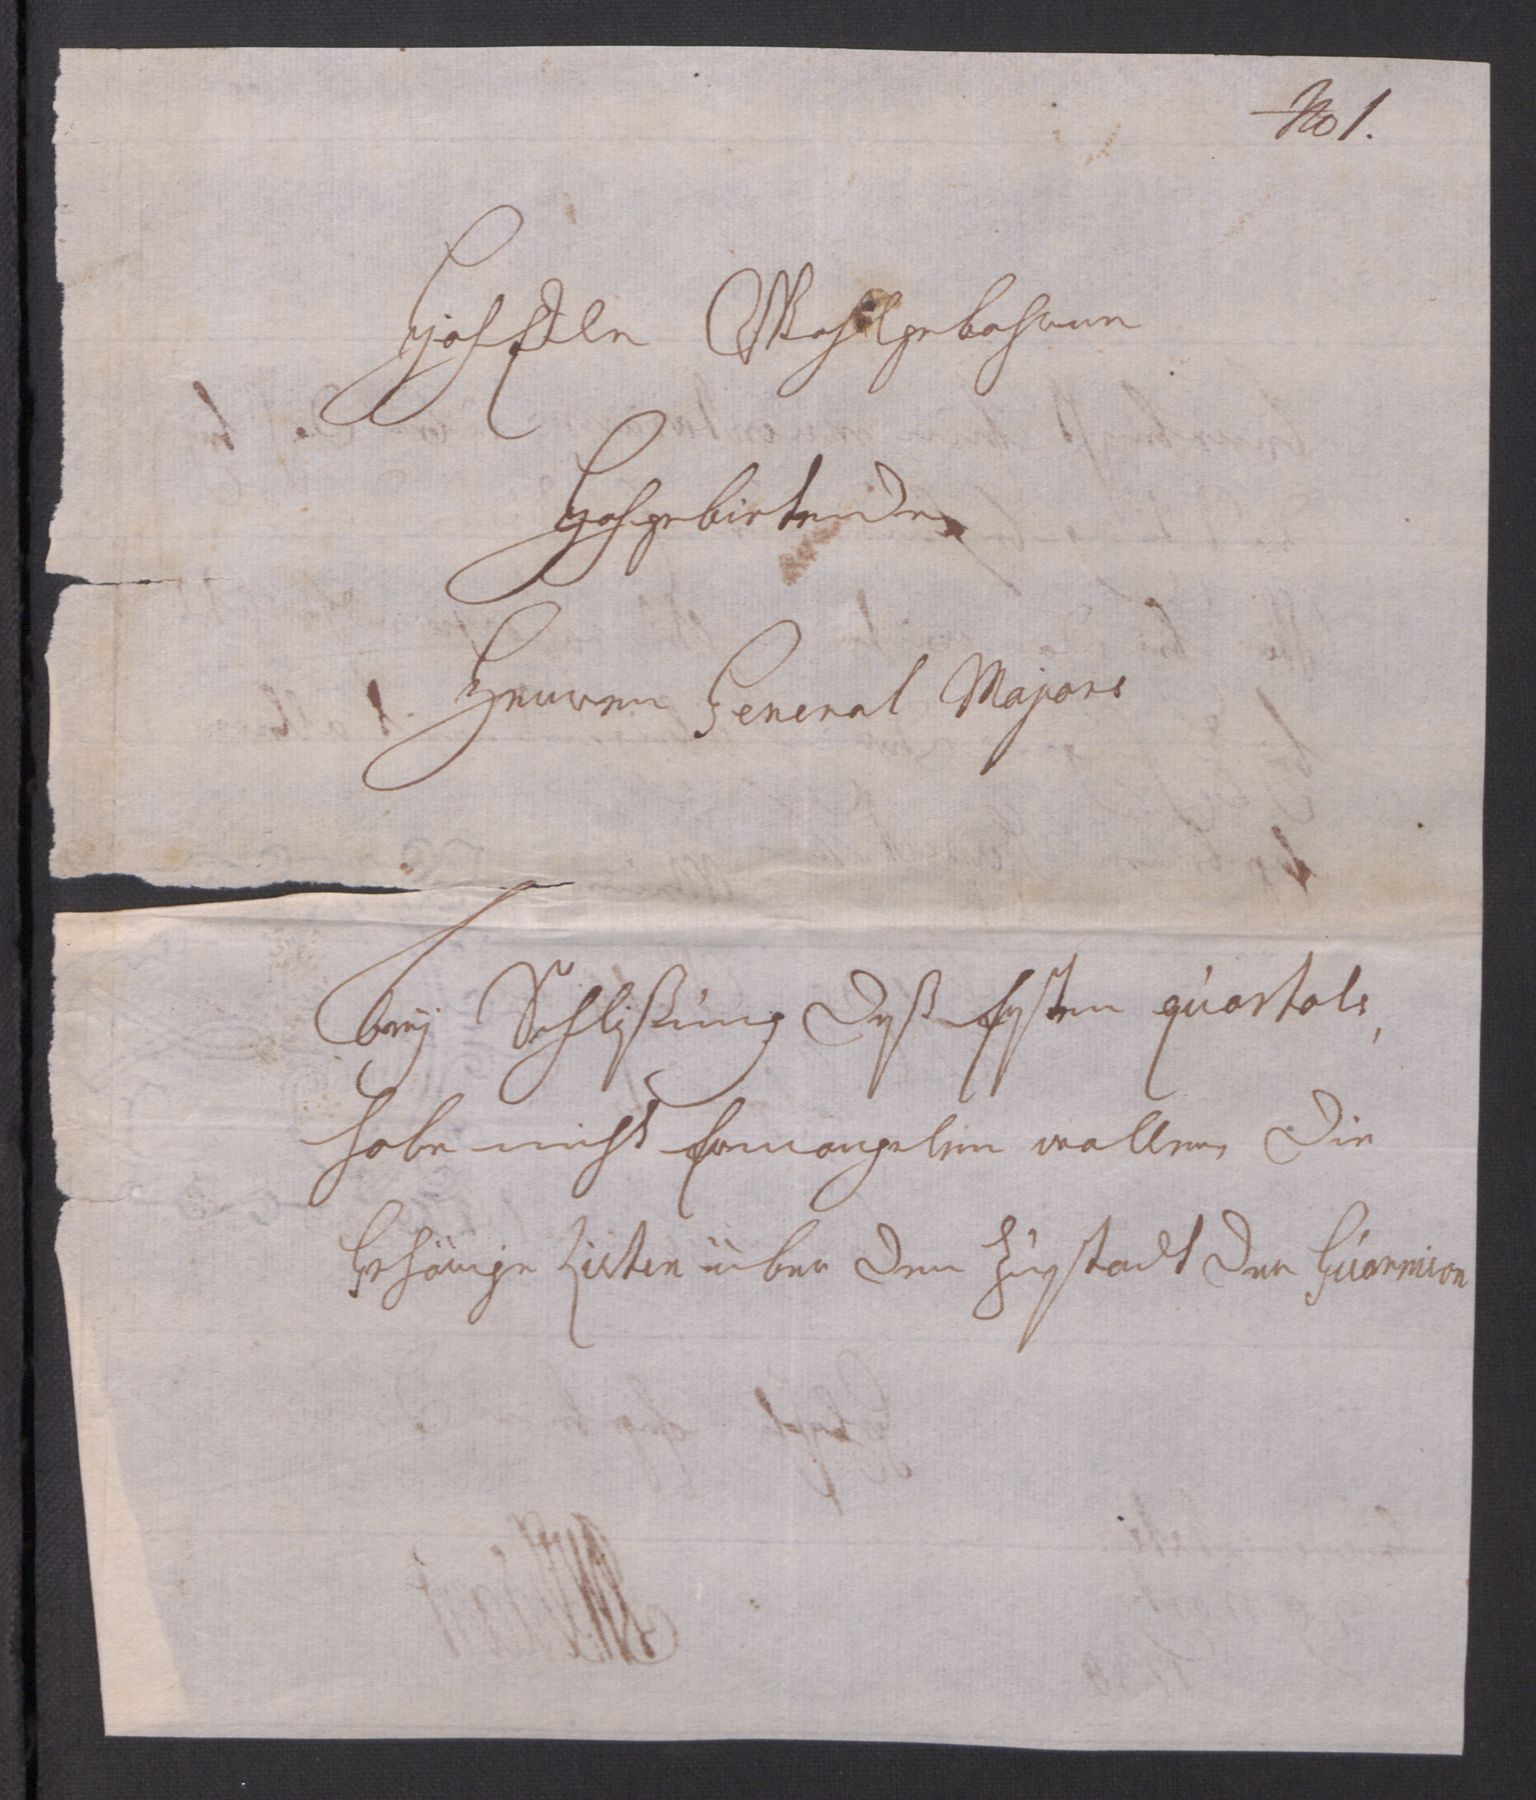 No 1.
HochEdler Wohlgebohrner
Hochgebietender
Herren General Majors
beÿ Schlißung dyß Ersten quartals,
habe nicht Ermangelen wollen, die
Gehörige Listen über den Zustadt der Guarnison